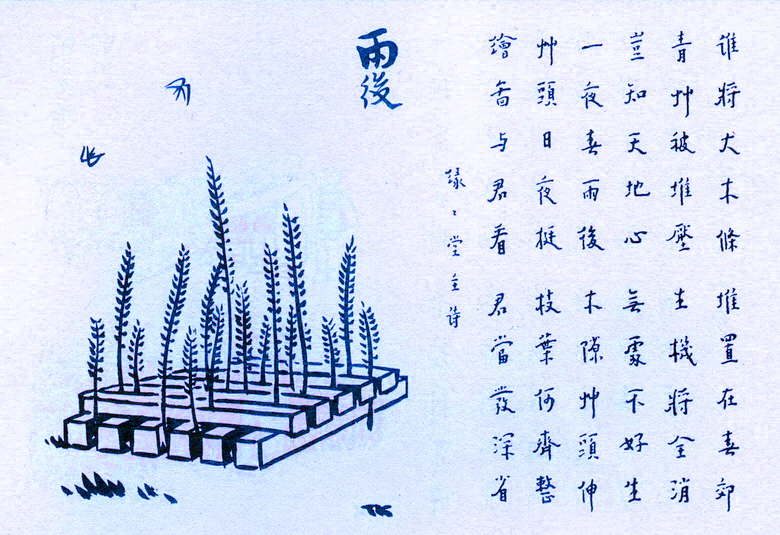 谁將大木條 堆置在春郊
青艸被堆壓 生機將全消
豈知天地心 無處不好生
一夜春雨後 木隙艸頭伸
艸頭日夜挺 枝葉何齊整
繪啚与君看 君當發深省
緣〻堂主詩
雨後
TK